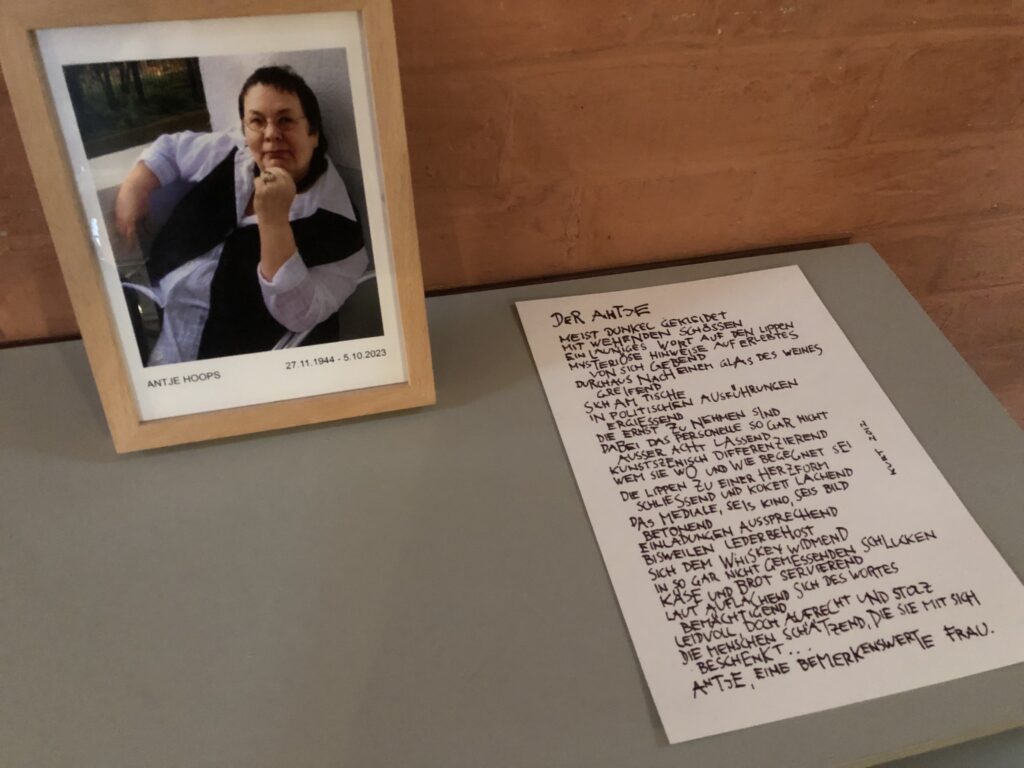 ANTJE HOOPS
27.11.1944 - 5.10.2023
DER ANTJE
MEIST DUNKEL GEKLEIDET
MIT WEHENDEN SCHÖSSEN
EIN LAUNIGES WORT AUF DEN LIPPEN
MYSTERIÖSE HINWEISE AUF ERLEBTES
VON SICH GEBEND
DURCHAUS NACH EINEM GLAS DES WEINES
GREIFEND
SICH AM TISCHE
IN POLITISCHEN AUSFÜHRUNGEN
ERGIESSEND
DIE ERNST ZU NEHMEN SIND
DABEI DAS PERSONELLE SO GAR NICHT
AUSSER ACHT LASSEND
KUNSTSZENISCH DIFFERENZIEREND
WEM SIE WO UND WIE BEGEGNET SEI
DIE LIPPEN ZU EINER HERZFORM
SCHLIESSEND UND KOKETT LACHEND
DAS MEDIALE, SEIS KINO, SEIS BILD
BETONEND
EINLADUNGEN AUSSPRECHEND
BISWEILEN LEDERBEHOST
SICH DEM WHISKEY WIDMEND
IN SO GAR NICHT GEMESSENDEN SCHLUCKEN
KÄSE UND BROT SERVIEREND
LAUT AUFLACHEND SICH DES WORTES
BEMÄCHTIGEND
LEIDVOLL, DOCH AUFRECHT UND STOLZ
DIE MENSCHEN SCHÄTZEND, DIE SIE MIT SICH
BESCHENKT...
ANTJE, EINE BEMERKENSWERTE FRAU.